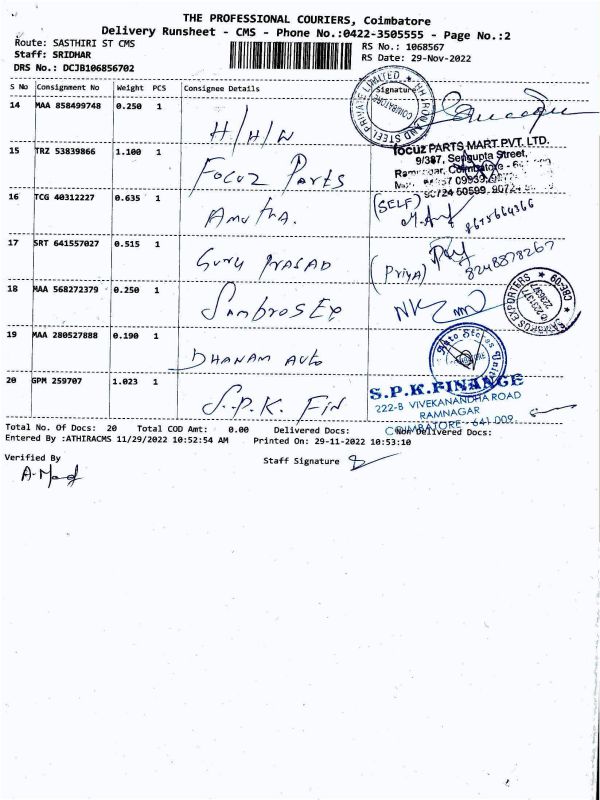 THE PROFESSIONAL COURIERS, Coimbatore
Delivery Runsheet - CMS - Phone No.:0422-3505555 - Page No.:2
Route: SASTHIRI ST CMS
RS No.: 1068567
Staff: SRIDHAR
RS Date: 29-Nov-2022
DRS No.: DCJB106856702
S No Consignment No Weight PCS Consignee Details Signature
PRIVATE LIMITED
IRON AND STEEL
COIMBATORE
14 MAA 858499748 0.250 1 H/H/W
15 TRZ 53839866 1.100 1 Focuz Parts
focuz PARTS MART PVT. LTD.
9/387, Sengupta Street,
Coimbatore
16 TCG 40312227 0.635 1 Amutha.
(SELF)
17 SRT 641557027 0.515 1 Guru Prasad
(Priya) 8248878267
18 MAA 568272379 0.250 1 Sambros Exp
EXPORTERS
19 MAA 280527888 0.190 1 DHANAM Auto
20 GPM 259707 1.023 1 S.P.K. Fin
S.P.K.FINANCE
222-B VIVEKANANDHA ROAD
RAMNAGAR
COIMBATORE - 641 009.
Total No. Of Docs: 20 Total COD Amt: 0.00 Delivered Docs: Non Delivered Docs:
Entered By :ATHIRACMS 11/29/2022 10:52:54 AM Printed On: 29-11-2022 10:53:10
Verified By
Staff Signature